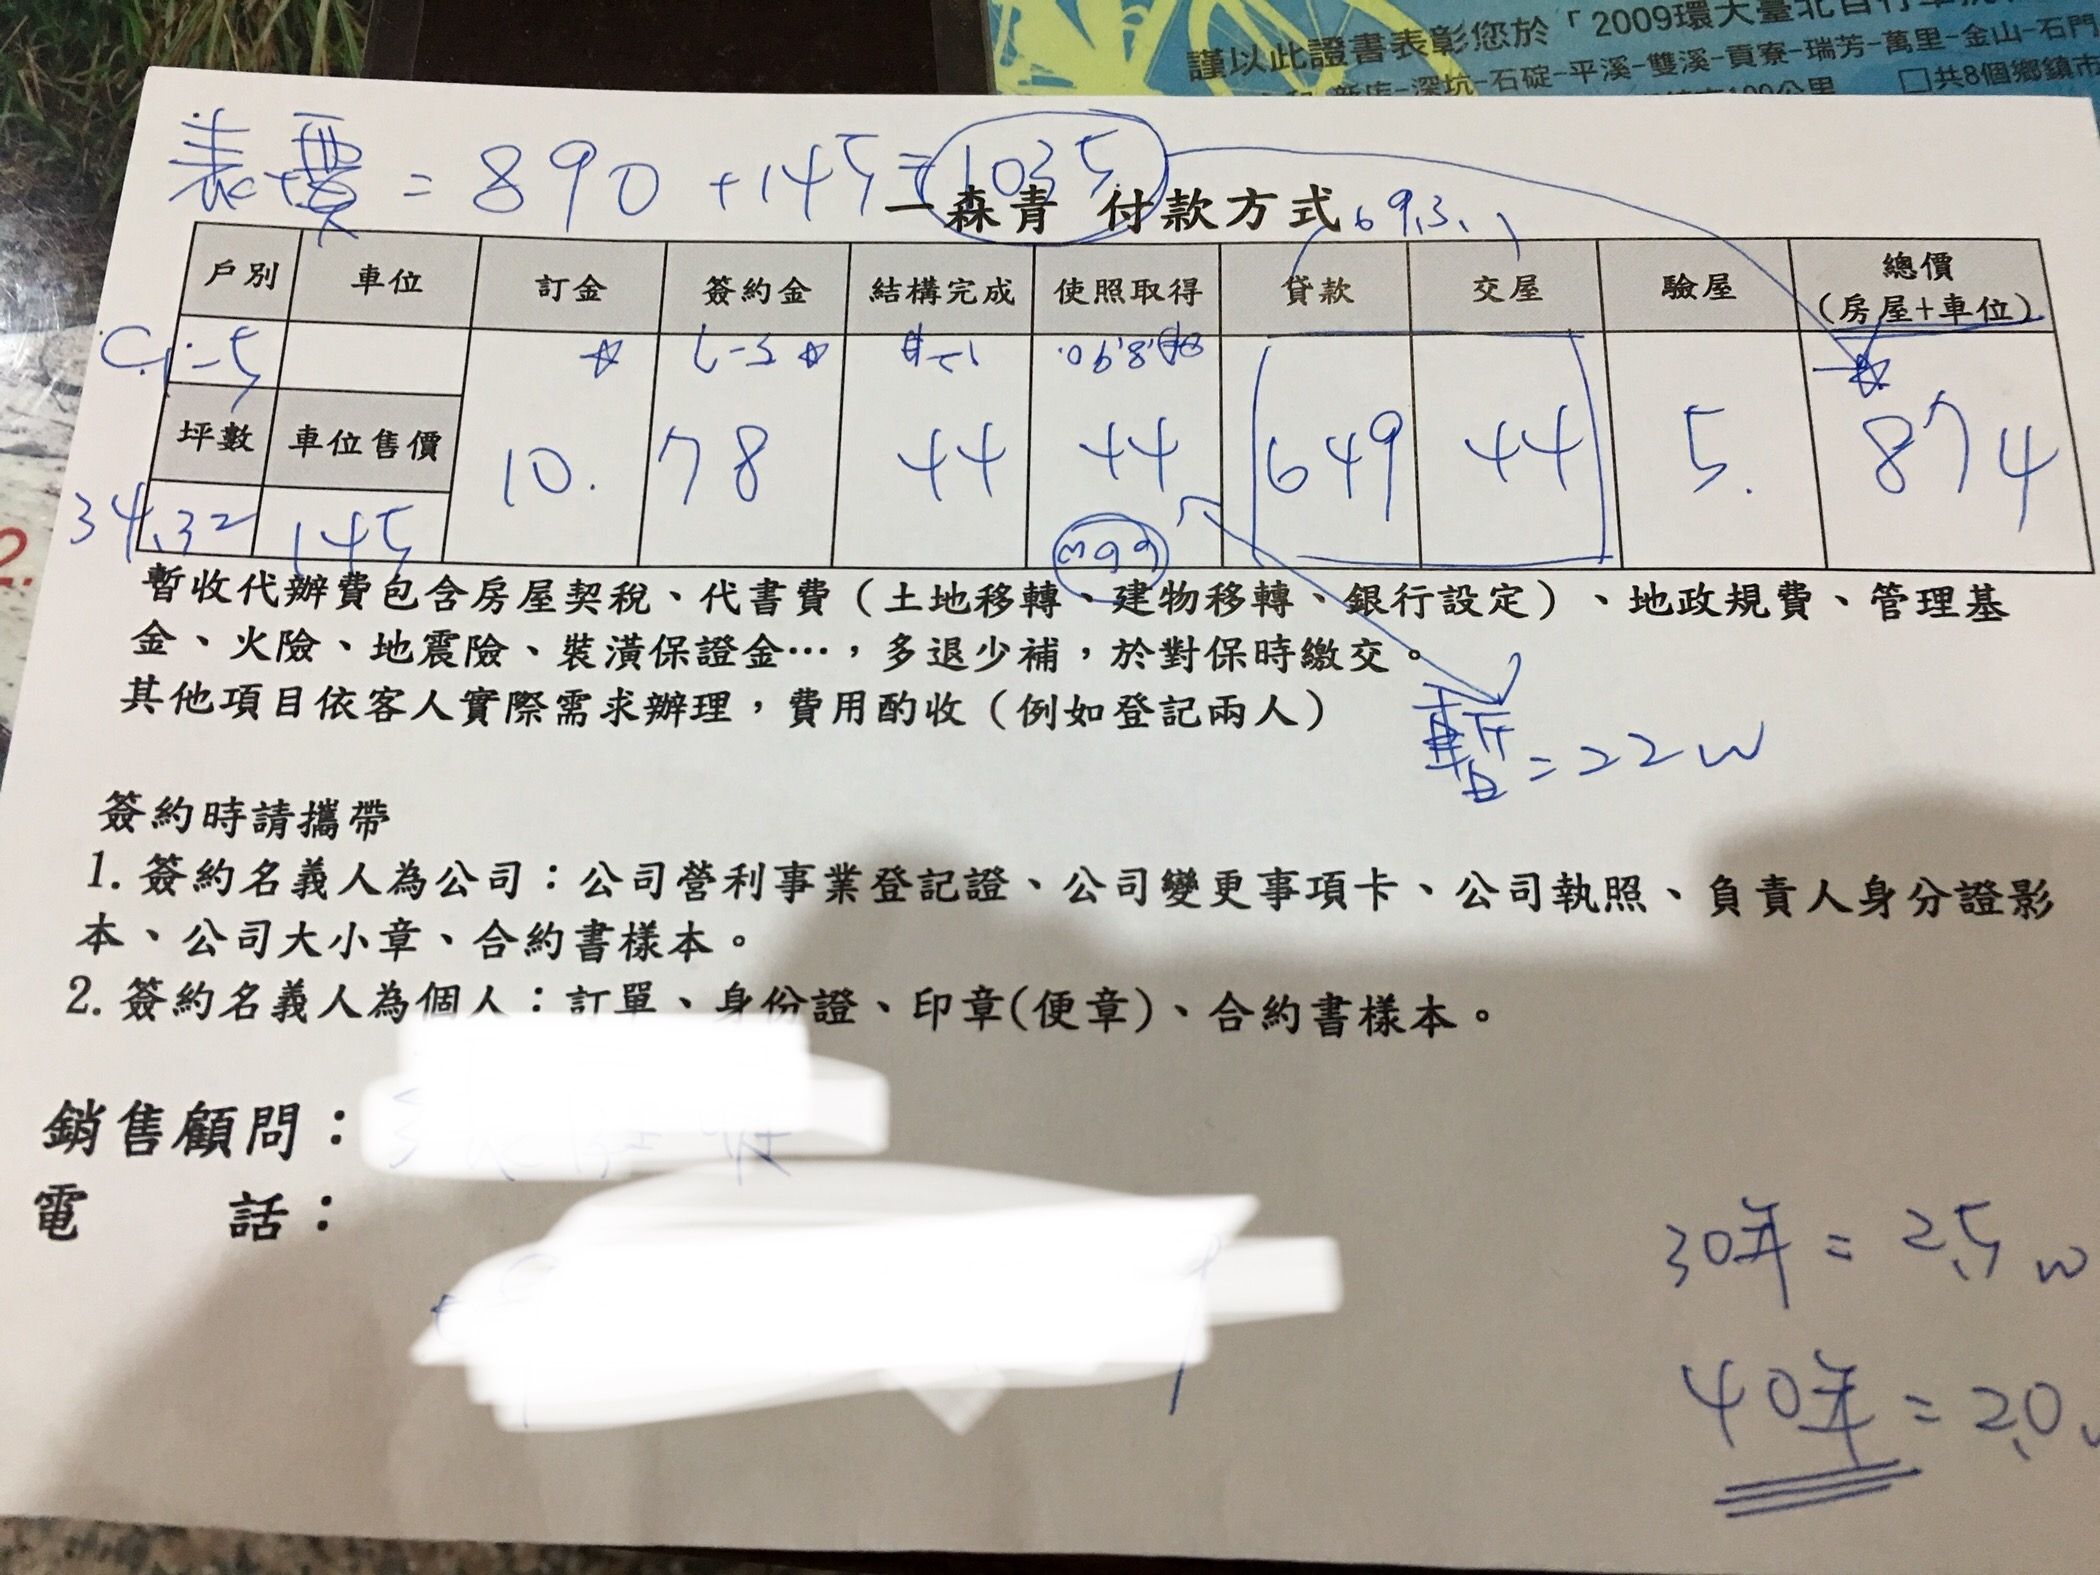 謹以此證書表彰您於「2009環大臺北自行車
深坑-石碇-平溪-雙溪-貢寮-瑞芳-萬里-金山-石門
100公里 □共8個鄉鎮市
表價=890+145=1035
一森青 付款方式 693.
戶別 車位 訂金 簽約金 結構完成 使照取得 貸款 交屋 驗屋 總價
(房屋+車位)
C1-5
坪數 車位售價 10. 78 44 44 649 44 5. 874
34.32 145
暫收代辦費包含房屋契稅、代書費(土地移轉、建物移轉、銀行設定)、地政規費、管理基
金、火險、地震險、裝潢保證金…,多退少補,於對保時繳交。
其他項目依客人實際需求辦理,費用酌收(例如登記兩人)
暫=22w
簽約時請攜帶
1. 簽約名義人為公司:公司營利事業登記證、公司變更事項卡、公司執照、負責人身分證影
本、公司大小章、合約書樣本。
2. 簽約名義人為個人:訂單、身份證、印章(便章)、合約書樣本。
銷售顧問:
電 話:
30年=2.5w
40年=2.0